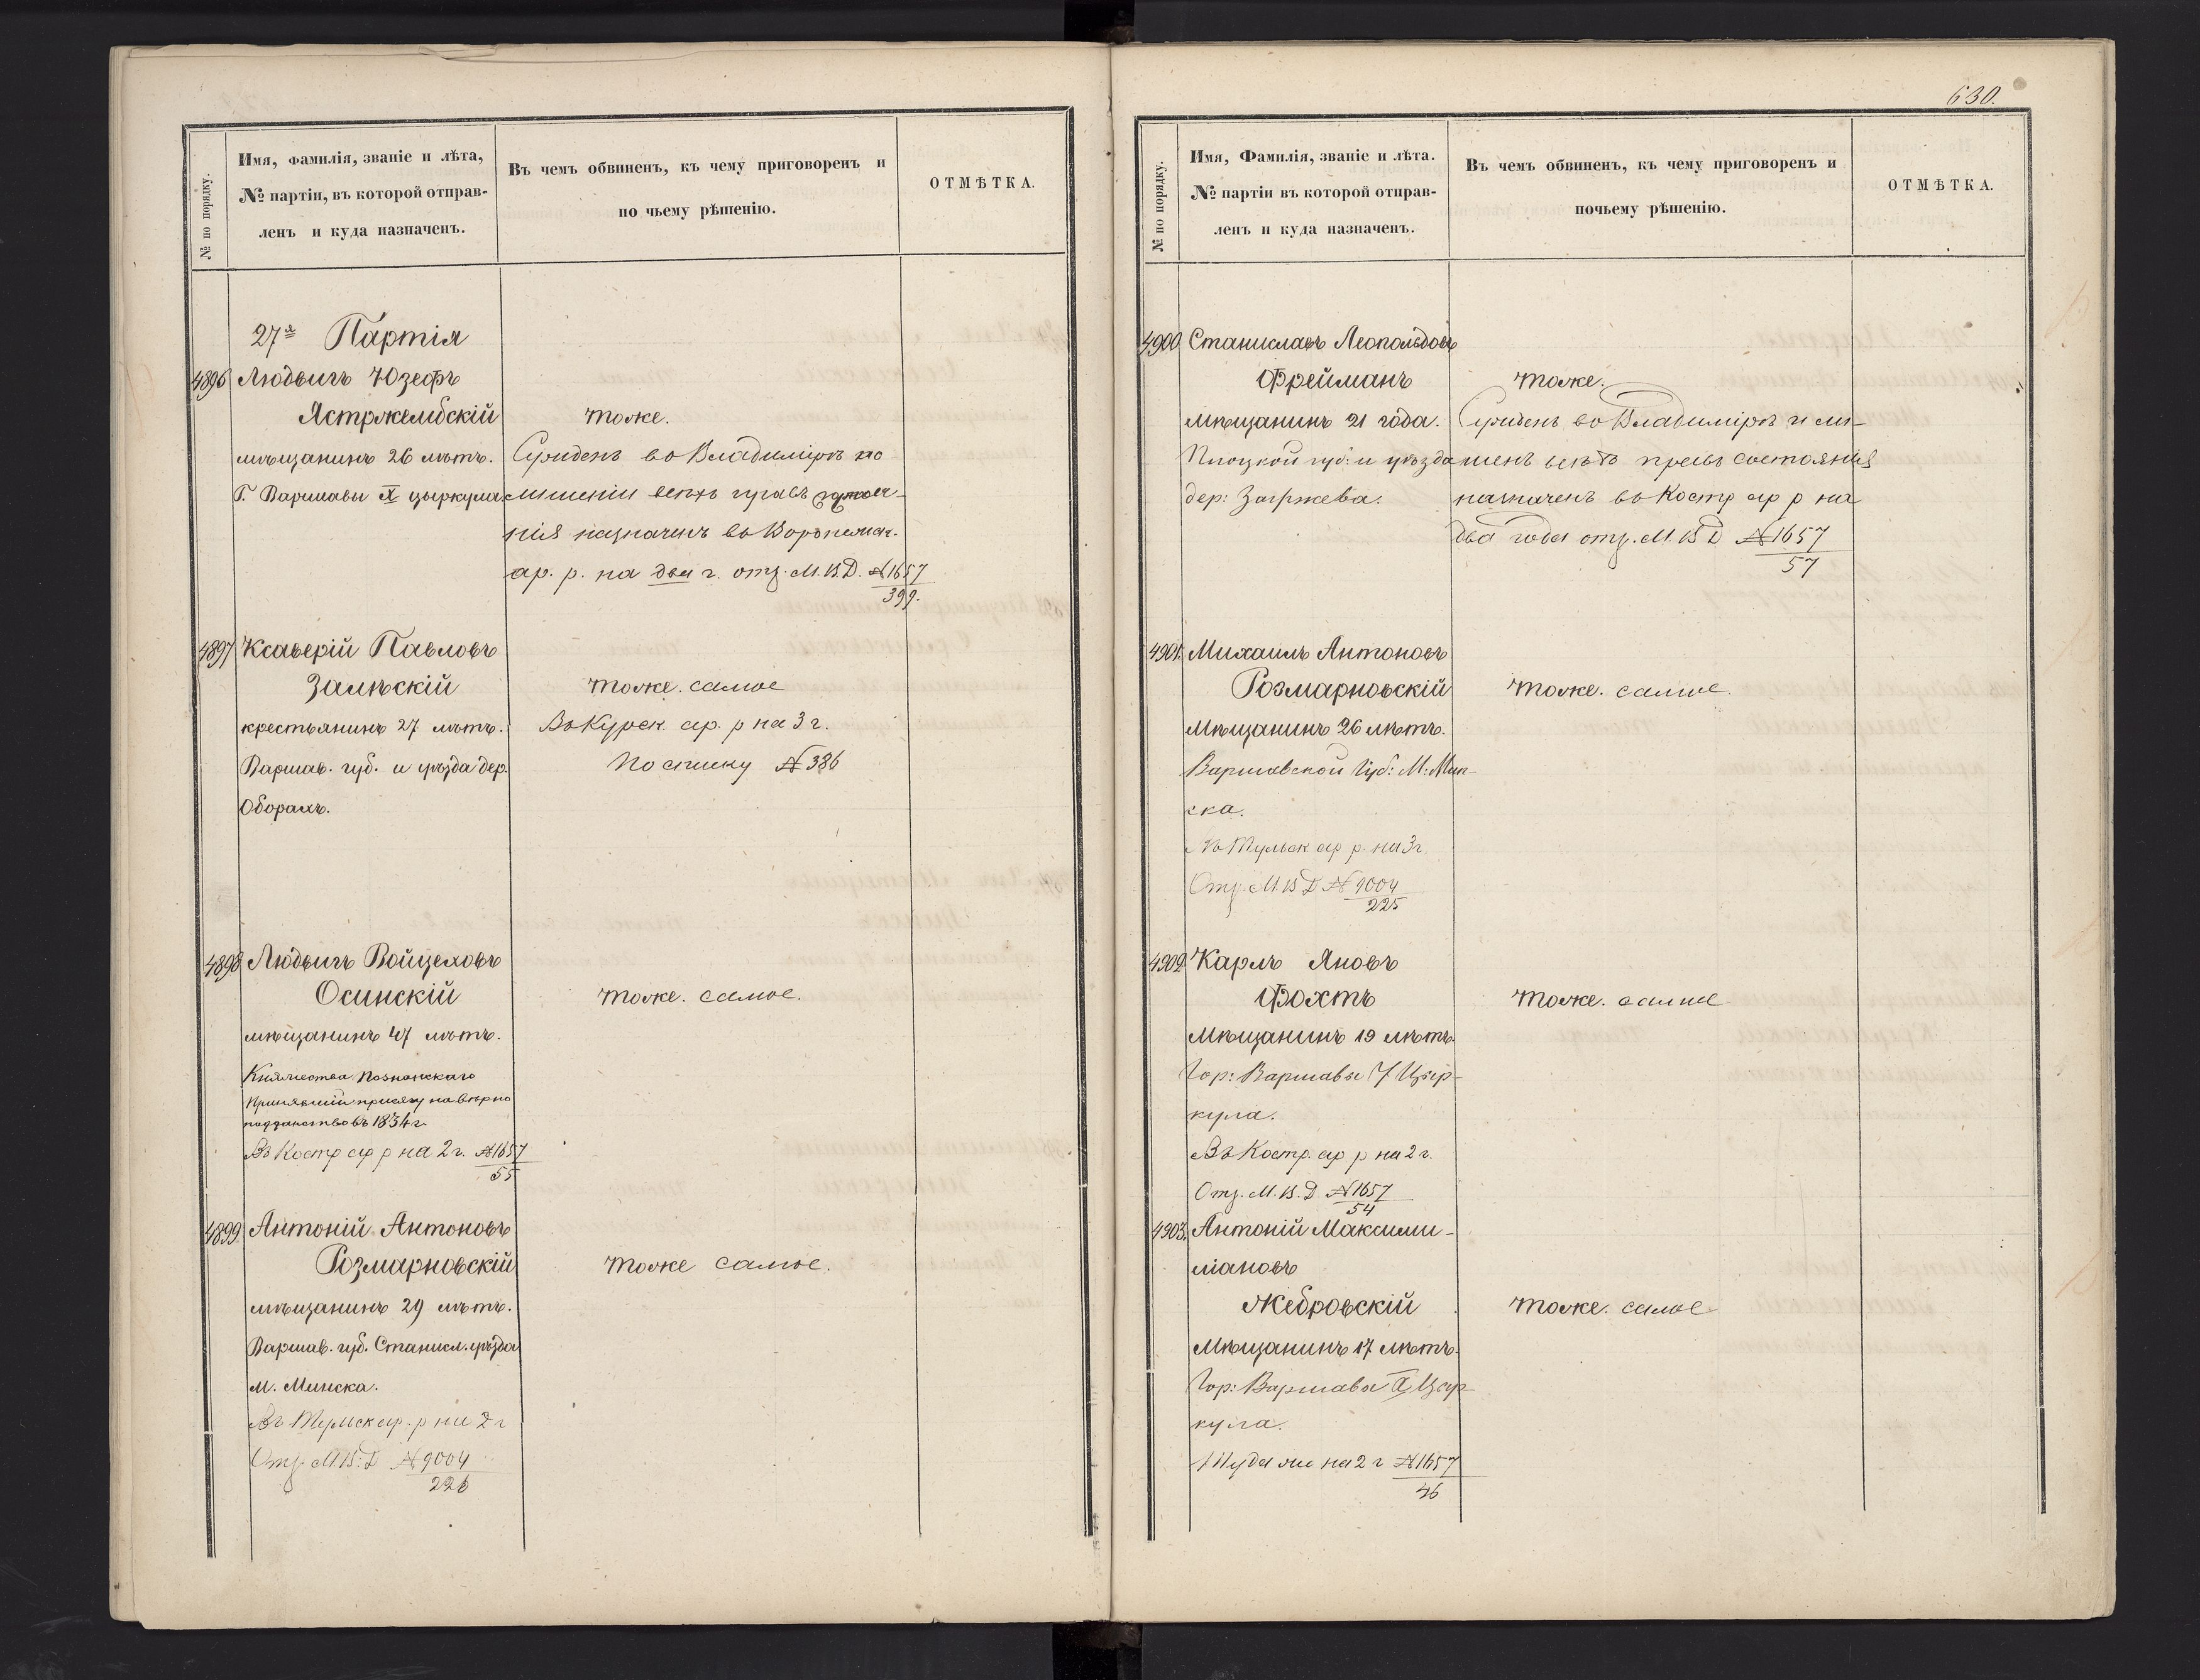 № по порядку.
Имя, фамилія, званіе и лѣта,
№ партіи, въ которой отправ-
ленъ и куда назначенъ.
Въ чемъ обвиненъ, къ чему приговоренъ и
по чьему рѣшенію.
ОТМѢТКА.
27я Партія
4896 Людвигъ Юзефъ
Ястржембскій тоже.
мѣщанинъ 26 лѣтъ. Сужденъ во Владимірѣ по
Г. Варшавы X цыркула лишеніи всѣхъ правъ состоя-
нія назначенъ въ Воронежск.
ар. р. на два г. отз. М.В.Д. №1657
399.
4897 Ксаверій Павловъ
Залѣскій тоже. самое
крестьянинъ 27 лѣтъ. Въ Курск ар. р на 3 г.
Варшав. губ. и уѣзда дер. По списку № 386
Оборахъ.
4898 Людвигъ Войцеховъ
Осинскій тоже. самое.
мѣщанинъ 47 лѣтъ.
Княжества Познанскаго
Принявшій присягу на вѣрно
подданство въ 1834 г.
Въ Костр ар р на 2 г. №1657
55
4899 Антоній Антоновъ
Розмарновскій тоже самое.
мѣщанинъ 29 лѣтъ.
Варшав. губ. Станисл. уѣзда
М. Минска.
Въ ар. р на 2 г
Отз. М.В.Д №9004
226
630.
№ по порядку.
Имя, Фамилія, званіе и лѣта.
№ партіи въ которой отправ-
ленъ и куда назначенъ.
Въ чемъ обвиненъ, къ чему приговоренъ и
почьему рѣшенію.
ОТМѢТКА.
4900 Станиславъ Леопольдовъ
Фрейманъ тоже.
мѣщанинъ 21 года. Сужденъ во Владимірѣ и ли-
Плоцкой губ: и уѣзда шенъ всѣхъ правъ состоянія
дер: Загржева. назначенъ въ Костр ар р на
два года отз. М.В.Д №1657
57
4901. Михаилъ Антоновъ
Розмарновскій тоже. самое.
Мѣщанинъ 26 лѣтъ.
Варшавской Губ: М: Мин-
ска.
Въ Тульск ар р. на 3 г.
Отз. М.В.Д № 9004
225
4902 Карлъ Яновъ
Фохтъ тоже. самое
Мѣщанинъ 19 лѣтъ.
Гор: Варшавы 7 Цыр-
кула.
Въ Костр. ар р на 2 г.
Отз. М.В.Д №1657
54
4903. Антоній Максими-
ліановъ
Жебровскій тоже. самое
Мѣщанинъ 17 лѣтъ.
Гор: Варшавы Цыр-
кула.
Туда же на 2 г №1657
46